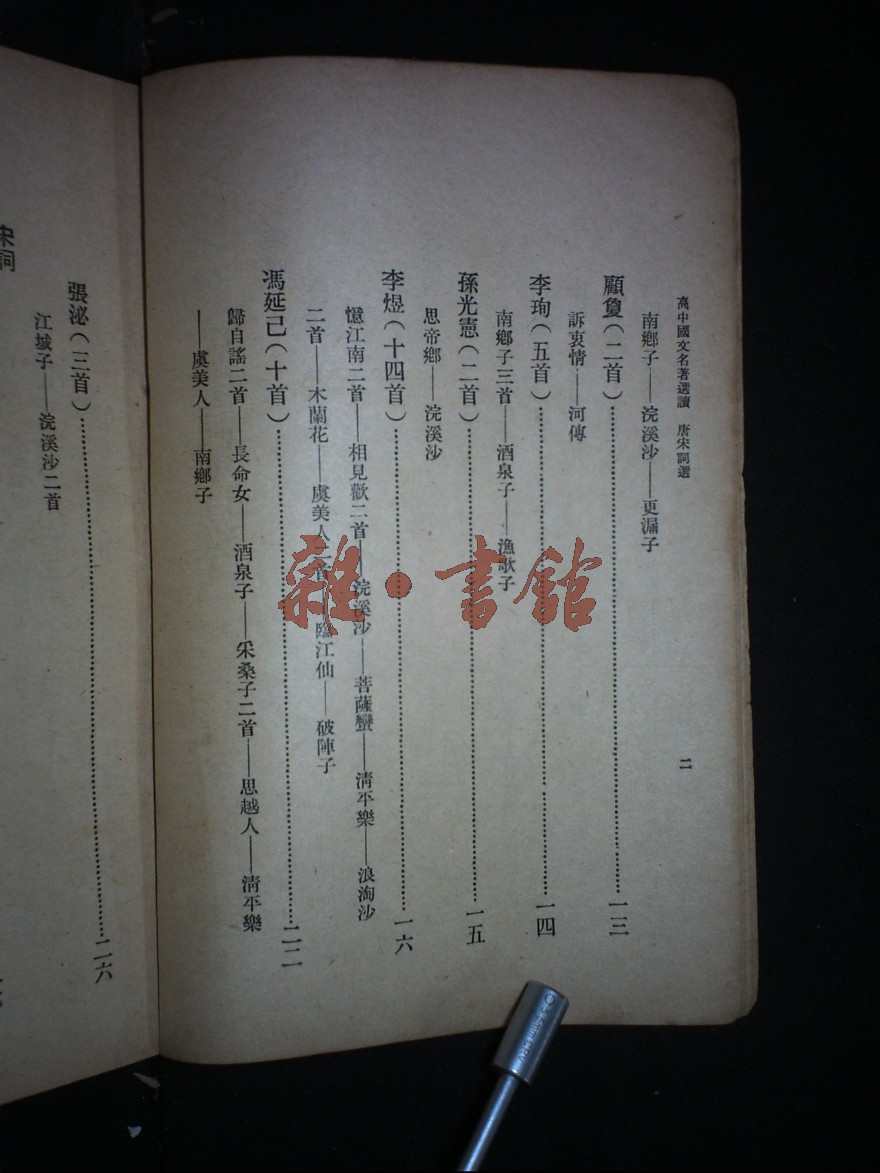 高中國文名著選讀　唐宋詞選
二
南鄉子——浣溪沙——更漏子
顧敻（二首）………一三
訴衷情——河傳
李珣（五首）………一四
南鄉子三首——酒泉子——漁歌子
孫光憲（二首）………一五
思帝鄉——浣溪沙
李煜（十四首）………一六
憶江南二首——相見歡二首——浣溪沙——菩薩蠻——淸平樂——浪淘沙
二首——木蘭花——虞美人二首——臨江仙——破陣子
馮延己（十首）………二二
歸自謠二首——長命女——酒泉子——采桑子二首——思越人——淸平樂
——虞美人——南鄉子
張泌（三首）………二六
江城子——浣溪沙二首
宋詞
雜·書館